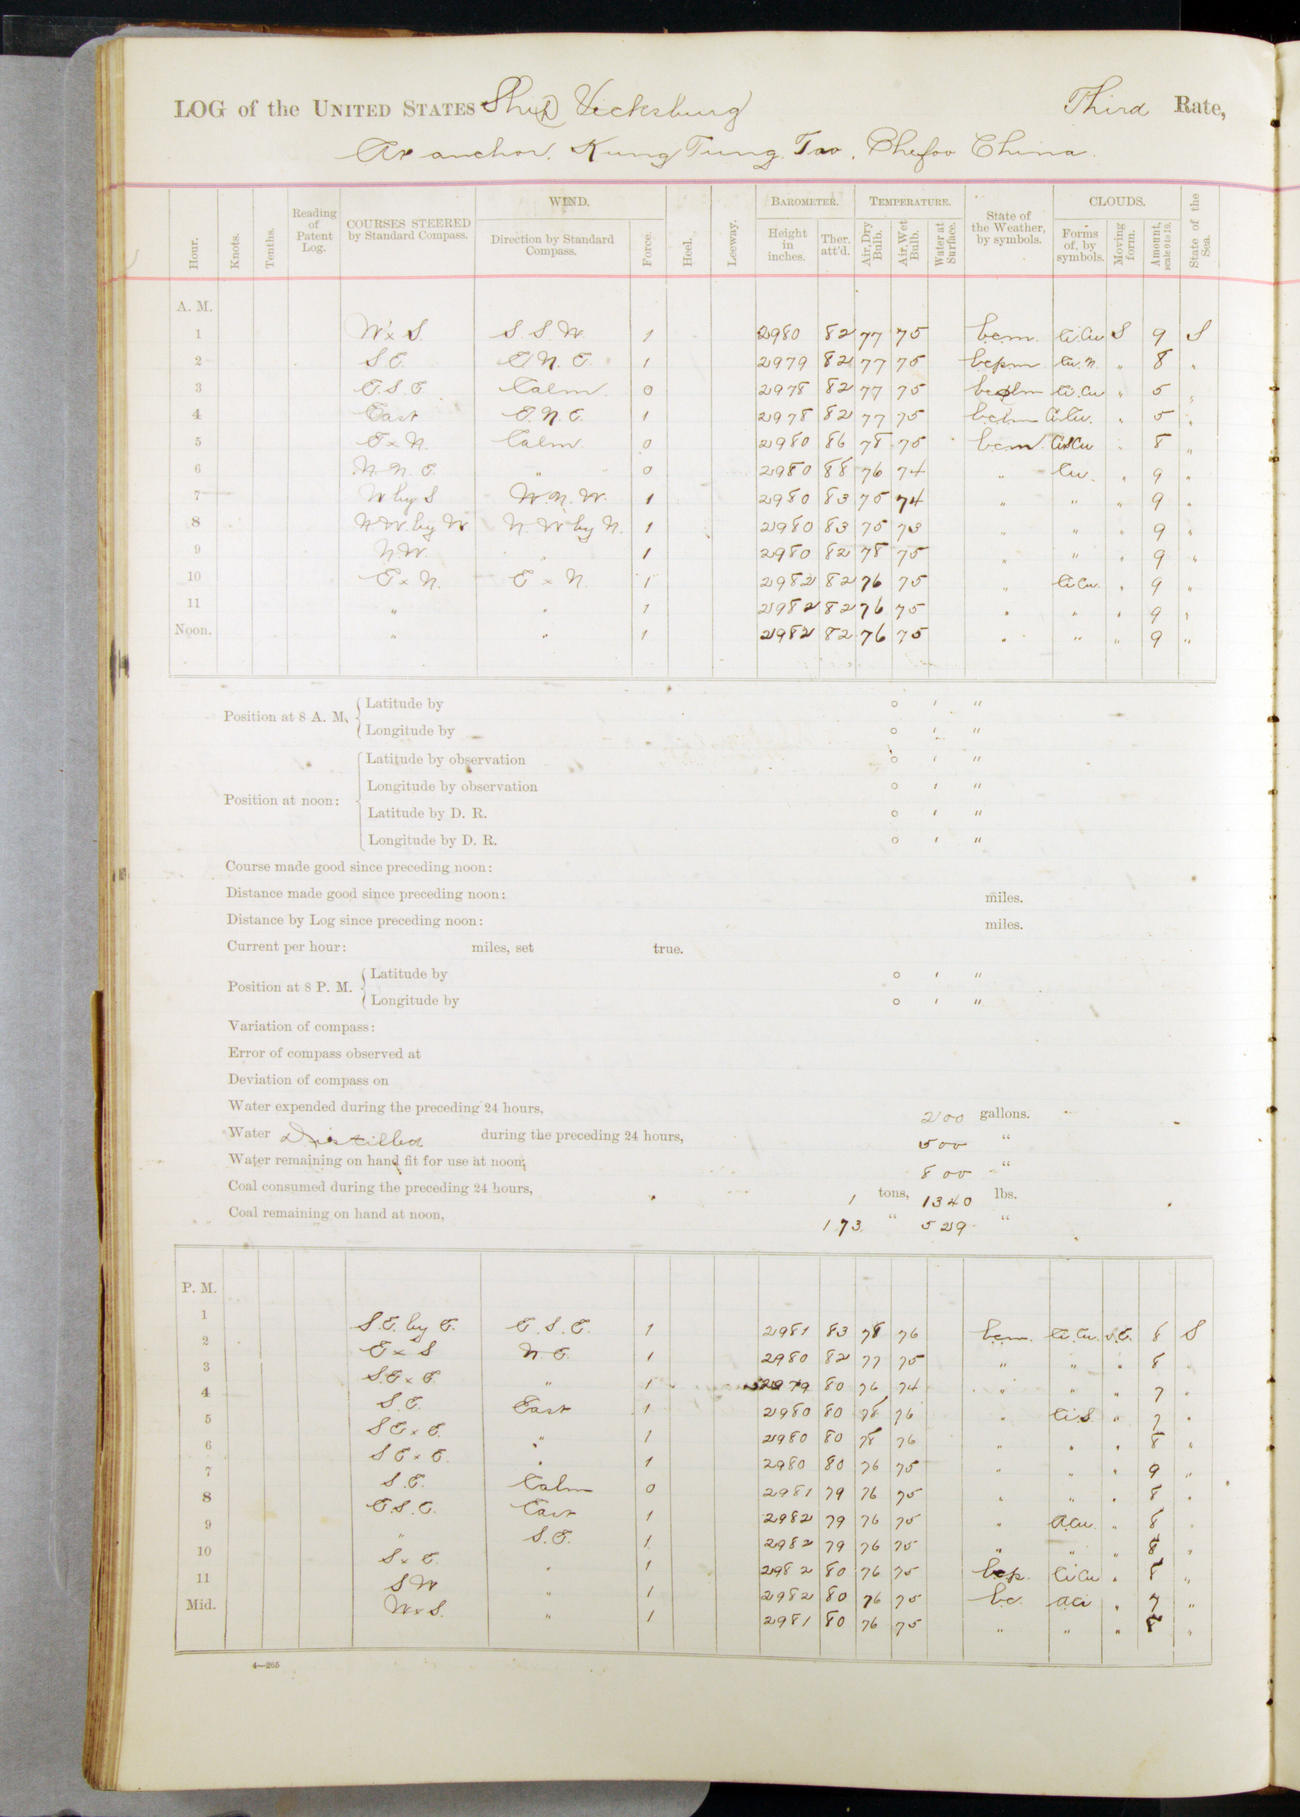 LOG of the UNITED STATES Ship Vicksburg Third Rate,
At anchor, Kung Tung Tao, Chefoo China.
Hour. Knots. Tenths. Reading of Patent Log. COURSES STEERED by Standard Compass. WIND. Direction by Standard Compass. Force. Heel. Leeway. BAROMETER. Height in inches. Ther. att'd. TEMPERATURE. Air, Dry Bulb. Air, Wet Bulb. Water at Surface. State of the Weather, by symbols. CLOUDS. Forms of, by symbols. Moving form. Amount, scale 0 to 10. State of the Sea.
A. M.
1 W x S. S. S. W. 1 2980 82 77 75 bcm. Ci.Cu S 9 S
2 S E. E. N. E. 1 2979 82 77 75 bcpm Cu. n. " 8 "
3 E. S. E. Calm. 0 2978 82 77 75 Ci.Cu " 5 "
4 East E. N. E. 1 2978 82 77 75 bclm Ci.Cu. " 5 "
5 E x N. Calm. 0 2980 86 78 75 bcm " 8 "
6 N. N. E. " 0 2980 88 76 74 " Cu. " 9 "
7 W by S W. N. W. 1 2980 83 75 74 " " " 9 "
8 N. W. by W N. W by N. 1 2980 83 75 73 " " " 9 "
9 N. W. " 1 2980 82 78 75 " " " 9 "
10 E x N. E x N. 1 2982 82 76 75 " Ci.Cu. " 9 "
11 " " 1 2982 82 76 75 " " " 9 "
Noon. " " 1 2982 82 76 75 " " " 9 "
Position at 8 A. M. { Latitude by ° ' "
Longitude by ° ' "
Position at noon: { Latitude by observation ° ' "
Longitude by observation ° ' "
Latitude by D. R. ° ' "
Longitude by D. R. ° ' "
Course made good since preceding noon:
Distance made good since preceding noon: miles.
Distance by Log since preceding noon: miles.
Current per hour: miles, set true.
Position at 8 P. M. { Latitude by ° ' "
Longitude by ° ' "
Variation of compass:
Error of compass observed at
Deviation of compass on
Water expended during the preceding 24 hours, 200 gallons.
Water Distilled during the preceding 24 hours, 500 "
Water remaining on hand fit for use at noon, 800 "
Coal consumed during the preceding 24 hours, 1 tons, 1340 lbs.
Coal remaining on hand at noon, 173 " 529 "
P. M.
1 S. E. by E. E. S. E. 1 2981 83 78 76 bcm. Ci.Cu. S.E. 8 S
2 E x S N. E. 1 2980 82 77 75 " " " 8 "
3 S. E x E. " 1 2979 80 76 74 " " " 7 "
4 S. E. East 1 2980 80 78 76 " Ci.S. " 7 "
5 S E x E. " 1 2980 80 78 76 " " " 8 "
6 S E x E. " 1 2980 80 76 75 " " " 9 "
7 S. E. Calm 0 2981 79 76 75 " " " 8 "
8 E. S. E. East 1 2982 79 76 75 " A.Cu. " 8 "
9 " S. E. 1 2982 79 76 75 " " " 8 "
10 S x E. " 1 2982 80 76 75 bcp. Ci.Cu " 8 "
11 S W " 1 2982 80 76 75 bc. " 7 "
Mid. W x S. " 1 2981 80 76 75 " " " 8 "
4—265